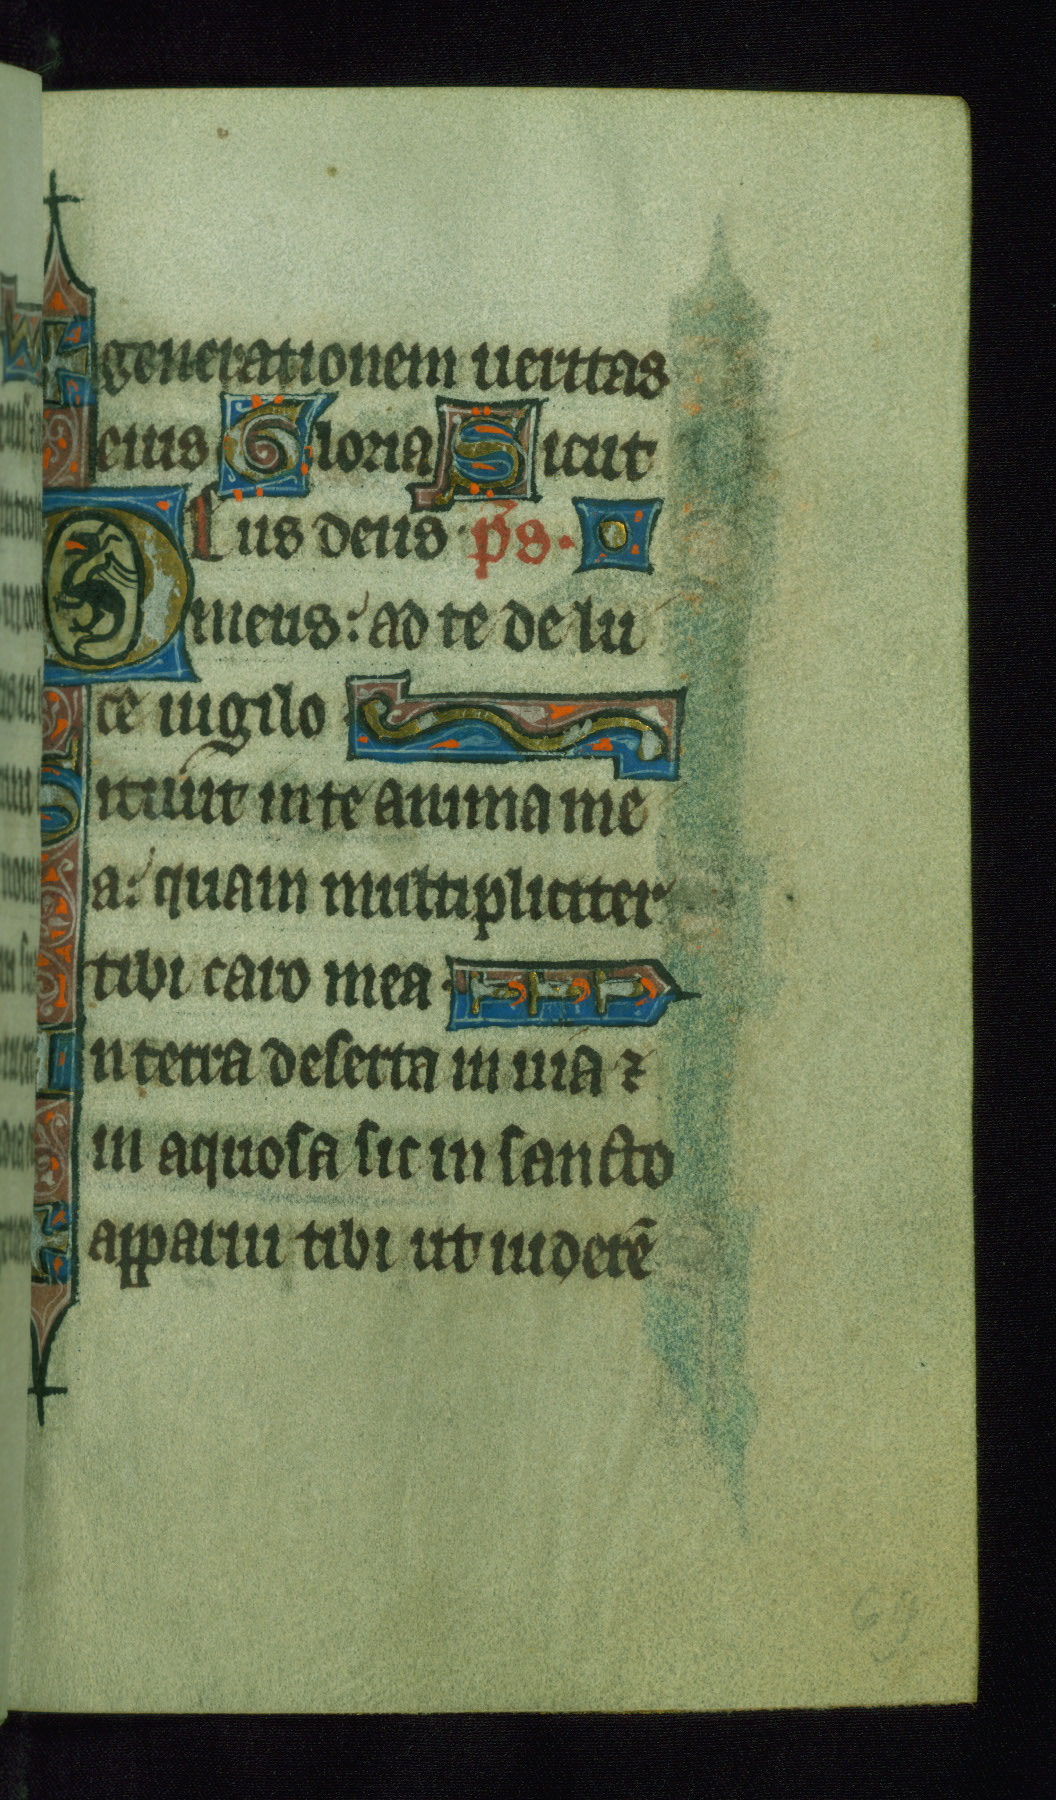 generationem ueritas
eius Gloria Sicut
Deus deus p̄s·
meus: ad te de lu
ce uigilo
Sitiuit in te anima me
a: quam multipliciter
tibi caro mea·
In terra deserta in uia ⁊
in aquosa sic in sancto
apparui tibi ut uiderē